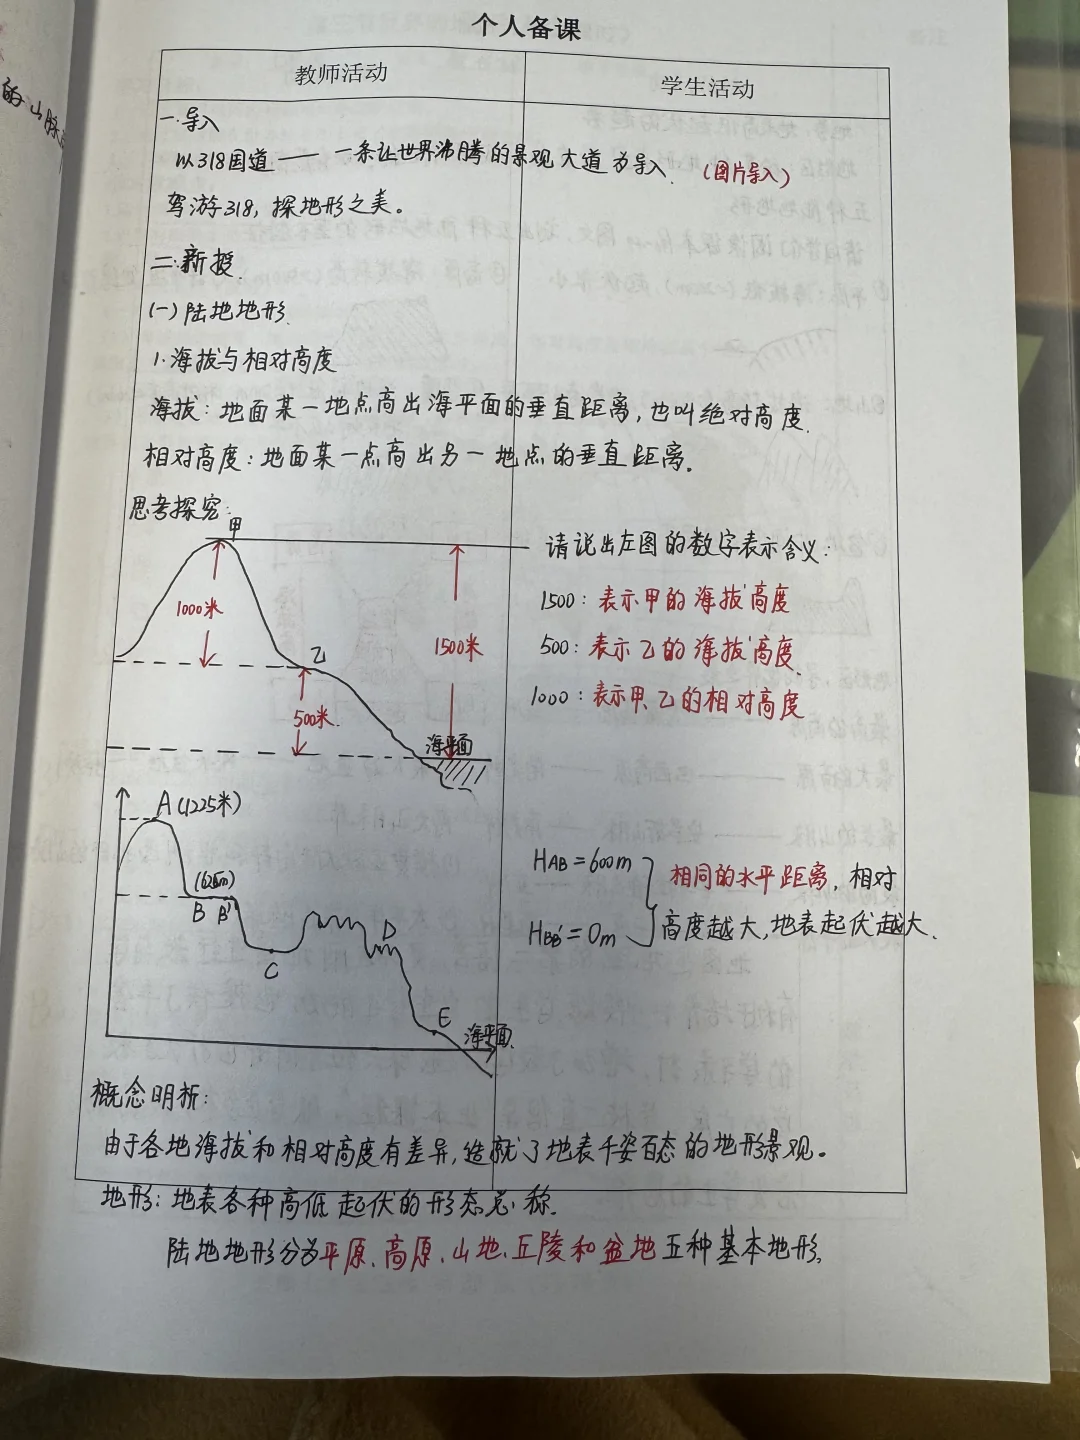 的山脉
个人备课
教师活动
学生活动
一.导入
以318国道——一条让世界沸腾的景观大道为导入.（图片导入）
驾游318，探地形之美。
二.新授.
(一)陆地地形.
1.海拔与相对高度
海拔：地面某一地点高出海平面的垂直距离，也叫绝对高度.
相对高度：地面某一点高出另一地点的垂直距离.
思考探究：
甲
1000米
乙
1500米
500米.
海平面
请说出左图的数字表示含义：
1500：表示甲的海拔高度
500：表示乙的海拔高度.
1000：表示甲、乙的相对高度
A(1225米)
(625m)
B B'
C
D
E
海平面.
HAB=600m
HBB'=0m
相同的水平距离，相对
高度越大，地表起伏越大.
概念明析：
由于各地海拔和相对高度有差异，造就了地表千姿百态的地形景观。
地形：地表各种高低起伏的形态总称.
陆地地形分为平原、高原、山地、丘陵和盆地五种基本地形，